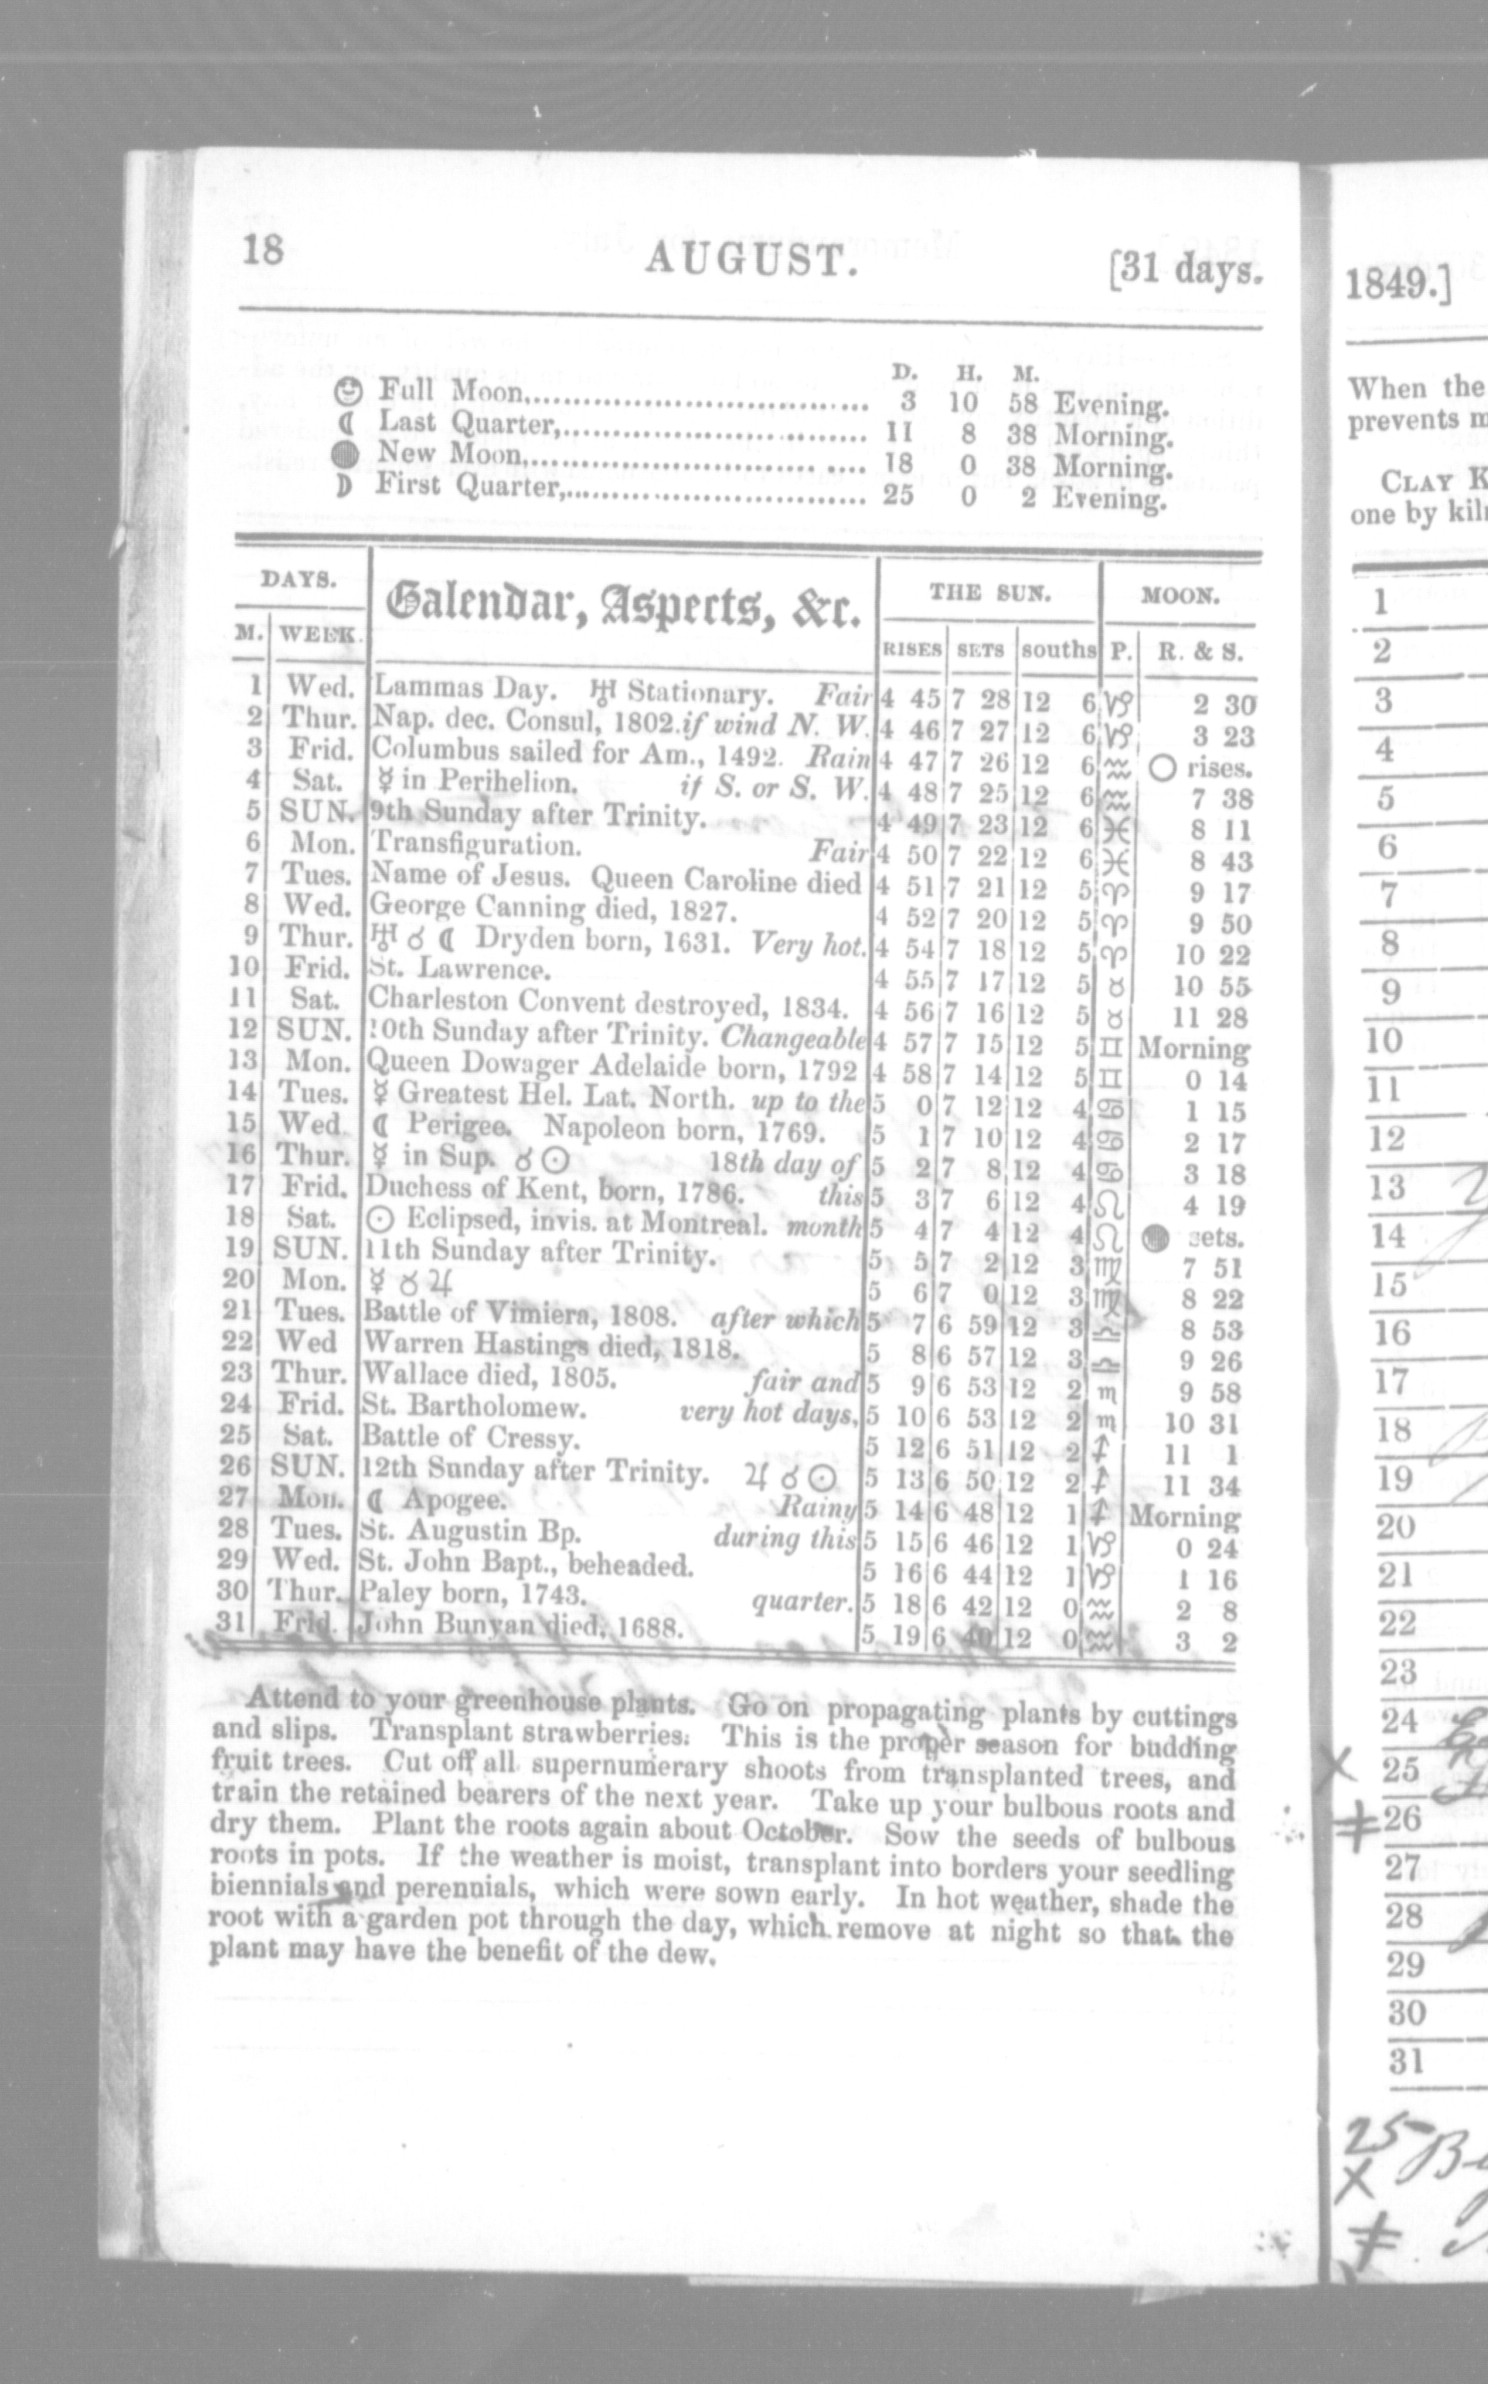 18 AUGUST. [31 days.
D. H. M.
Full Moon,........ 3 10 58 Evening.
☾ Last Quarter,........ 11 8 38 Morning.
New Moon,........ 18 0 38 Morning.
☽ First Quarter,........ 25 0 2 Evening.
DAYS. Calendar, Aspects, &c. THE SUN. MOON.
M. WEEK. RISES SETS souths P. R. & S.
1 Wed. Lammas Day. ♅ Stationary. Fair 4 45 7 28 12 6 ♑ 2 30
2 Thur. Nap. dec. Consul, 1802. if wind N. W. 4 46 7 27 12 6 ♑ 3 23
3 Frid. Columbus sailed for Am., 1492. Rain 4 47 7 26 12 6 ♒ ○ rises.
4 Sat. ☿ in Perihelion. if S. or S. W. 4 48 7 25 12 6 ♒ 7 38
5 SUN. 9th Sunday after Trinity. 4 49 7 23 12 6 ♓ 8 11
6 Mon. Transfiguration. Fair 4 50 7 22 12 6 ♓ 8 43
7 Tues. Name of Jesus. Queen Caroline died 4 51 7 21 12 5 ♈ 9 17
8 Wed. George Canning died, 1827. 4 52 7 20 12 5 ♈ 9 50
9 Thur. ♅ ☌ ☾ Dryden born, 1631. Very hot. 4 54 7 18 12 5 ♈ 10 22
10 Frid. St. Lawrence. 4 55 7 17 12 5 ♉ 10 55
11 Sat. Charleston Convent destroyed, 1834. 4 56 7 16 12 5 ♉ 11 28
12 SUN. 10th Sunday after Trinity. Changeable 4 57 7 15 12 5 ♊ Morning
13 Mon. Queen Dowager Adelaide born, 1792 4 58 7 14 12 5 ♊ 0 14
14 Tues. ☿ Greatest Hel. Lat. North. up to the 5 0 7 12 12 4 ♋ 1 15
15 Wed. ☾ Perigee. Napoleon born, 1769. 5 1 7 10 12 4 ♋ 2 17
16 Thur. ☿ in Sup. ☌ ☉ 18th day of 5 2 7 8 12 4 ♋ 3 18
17 Frid. Duchess of Kent, born, 1786. this 5 3 7 6 12 4 ♌ 4 19
18 Sat. ☉ Eclipsed, invis. at Montreal. month 5 4 7 4 12 4 ♌ ● sets.
19 SUN. 11th Sunday after Trinity. 5 5 7 2 12 3 ♍ 7 51
20 Mon. ☿ ☌ ♃ 5 6 7 0 12 3 ♍ 8 22
21 Tues. Battle of Vimiera, 1808. after which 5 7 6 59 12 3 ♎ 8 53
22 Wed Warren Hastings died, 1818. 5 8 6 57 12 3 ♎ 9 26
23 Thur. Wallace died, 1805. fair and 5 9 6 53 12 2 ♏ 9 58
24 Frid. St. Bartholomew. very hot days, 5 10 6 53 12 2 ♏ 10 31
25 Sat. Battle of Cressy. 5 12 6 51 12 2 ♐ 11 1
26 SUN. 12th Sunday after Trinity. ♃ ☌ ☉ 5 13 6 50 12 2 ♐ 11 34
27 Mon. ☾ Apogee. Rainy 5 14 6 48 12 1 ♐ Morning
28 Tues. St. Augustin Bp. during this 5 15 6 46 12 1 ♑ 0 24
29 Wed. St. John Bapt., beheaded. 5 16 6 44 12 1 ♑ 1 16
30 Thur. Paley born, 1743. quarter. 5 18 6 42 12 0 ♒ 2 8
31 Frid. John Bunyan died, 1688. 5 19 6 40 12 0 ♒ 3 2
Attend to your greenhouse plants. Go on propagating plants by cuttings
and slips. Transplant strawberries. This is the proper season for budding
fruit trees. Cut off all supernumerary shoots from transplanted trees, and
train the retained bearers of the next year. Take up your bulbous roots and
dry them. Plant the roots again about October. Sow the seeds of bulbous
roots in pots. If the weather is moist, transplant into borders your seedling
biennials and perennials, which were sown early. In hot weather, shade the
root with a garden pot through the day, which remove at night so that the
plant may have the benefit of the dew.
1849.]
When the
prevents
CLAY
one by
1
2
3
4
5
6
7
8
9
10
11
12
13
14
15
16
17
18
19
20
21
22
23
24
X 25
‡ 26
27
28
29
30
31
25
X
‡